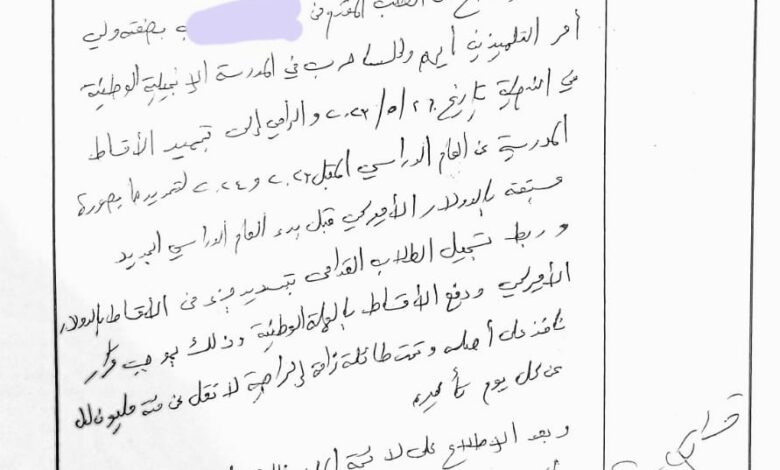 الطلب المقدم في
ب بصفته ولي
أمر التلميذين أيهم و حرب في المدرسة الإنجيلية الوطنية
في النبطية تاريخ ٢٠٢٣/٥/٢٦ والرامي إلى تجميد الأقساط
المدرسية عن العام الدراسي المقبل ٢٠٢٣ و ٢٠٢٤ بصورة
مسبقة بالدولار الأميركي قبل بدء العام الدراسي الجديد
و ربط تسجيل الطلاب القدامى بتسديد جزء من الأقساط بالدولار
الأميركي ودفع الأقساط بالعملة الوطنية وذلك بموجب قرار
نافذ على أصله وتحت طائلة غرامة إكراهية لا تقل عن مئة مليون ل.ل
عن كل يوم تأخير
و بعد الإطلاع على لائحة